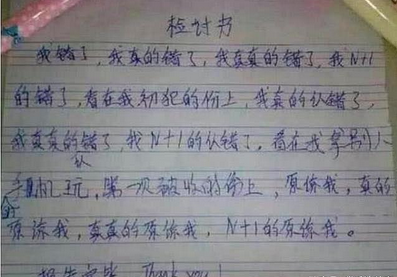 检讨书
我错了，我真的错了，我真真的错了，我N+1
的错了，看在我初犯的份上，我真的认错了，
我真真的认错了，我N+1的认错了，看在我拿别人
手机玩，第一次被收的份上，原谅我，真的
原谅我，真真的原谅我，N+1的原谅我。
Thank you!